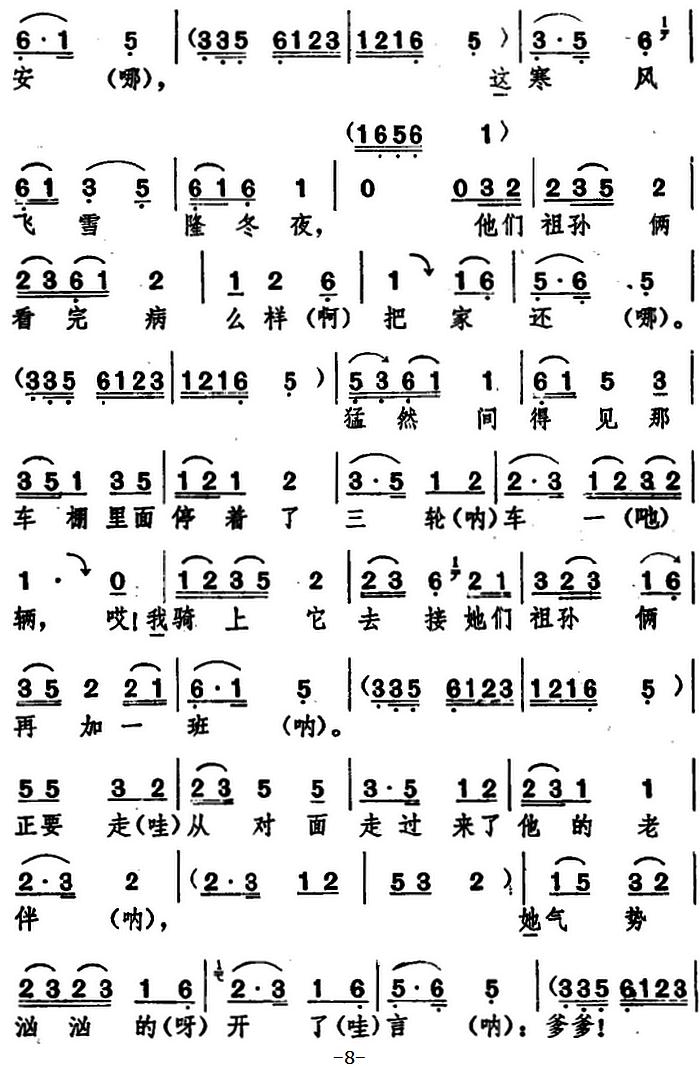 6·1 5 | (335 6123 | 1216 5 ) | 3·5 6 |
安 (哪), 这寒 风
(1656 1)
61 3 5 | 616 1 | 0 032 | 235 2 |
飞 雪 隆冬夜, 他们祖孙 俩
2361 2 | 1 2 6 | 1 16 | 5·6 5 |
看完 病 么样(啊) 把 家 还 (哪)。
(335 6123 | 1216 5 ) | 5361 1 | 61 5 3 |
猛然 间 得 见 那
351 35 | 121 2 | 3·5 12 | 2·3 1232 |
车棚里面停着 了 三 轮(呐)车 一(吔)
1· 0 | 1235 2 | 23 6 21 | 323 16 |
辆, 哎!我骑上 它 去 接她们 祖孙 俩
35 2 21 | 6·1 5 | (335 6123 | 1216 5 ) |
再 加一 班 (呐)。
55 32 | 23 5 5 | 3·5 12 | 231 1 |
正要 走(哇)从 对 面 走过 来了 他的 老
2·3 2 | (2·3 12 | 53 2 ) | 15 32 |
伴 (呐), 她气 势
2323 16 | 2·3 16 | 5·6 5 | (335 6123 |
汹汹 的(呀) 开 了(哇)言 (呐): 爹爹!
-8-